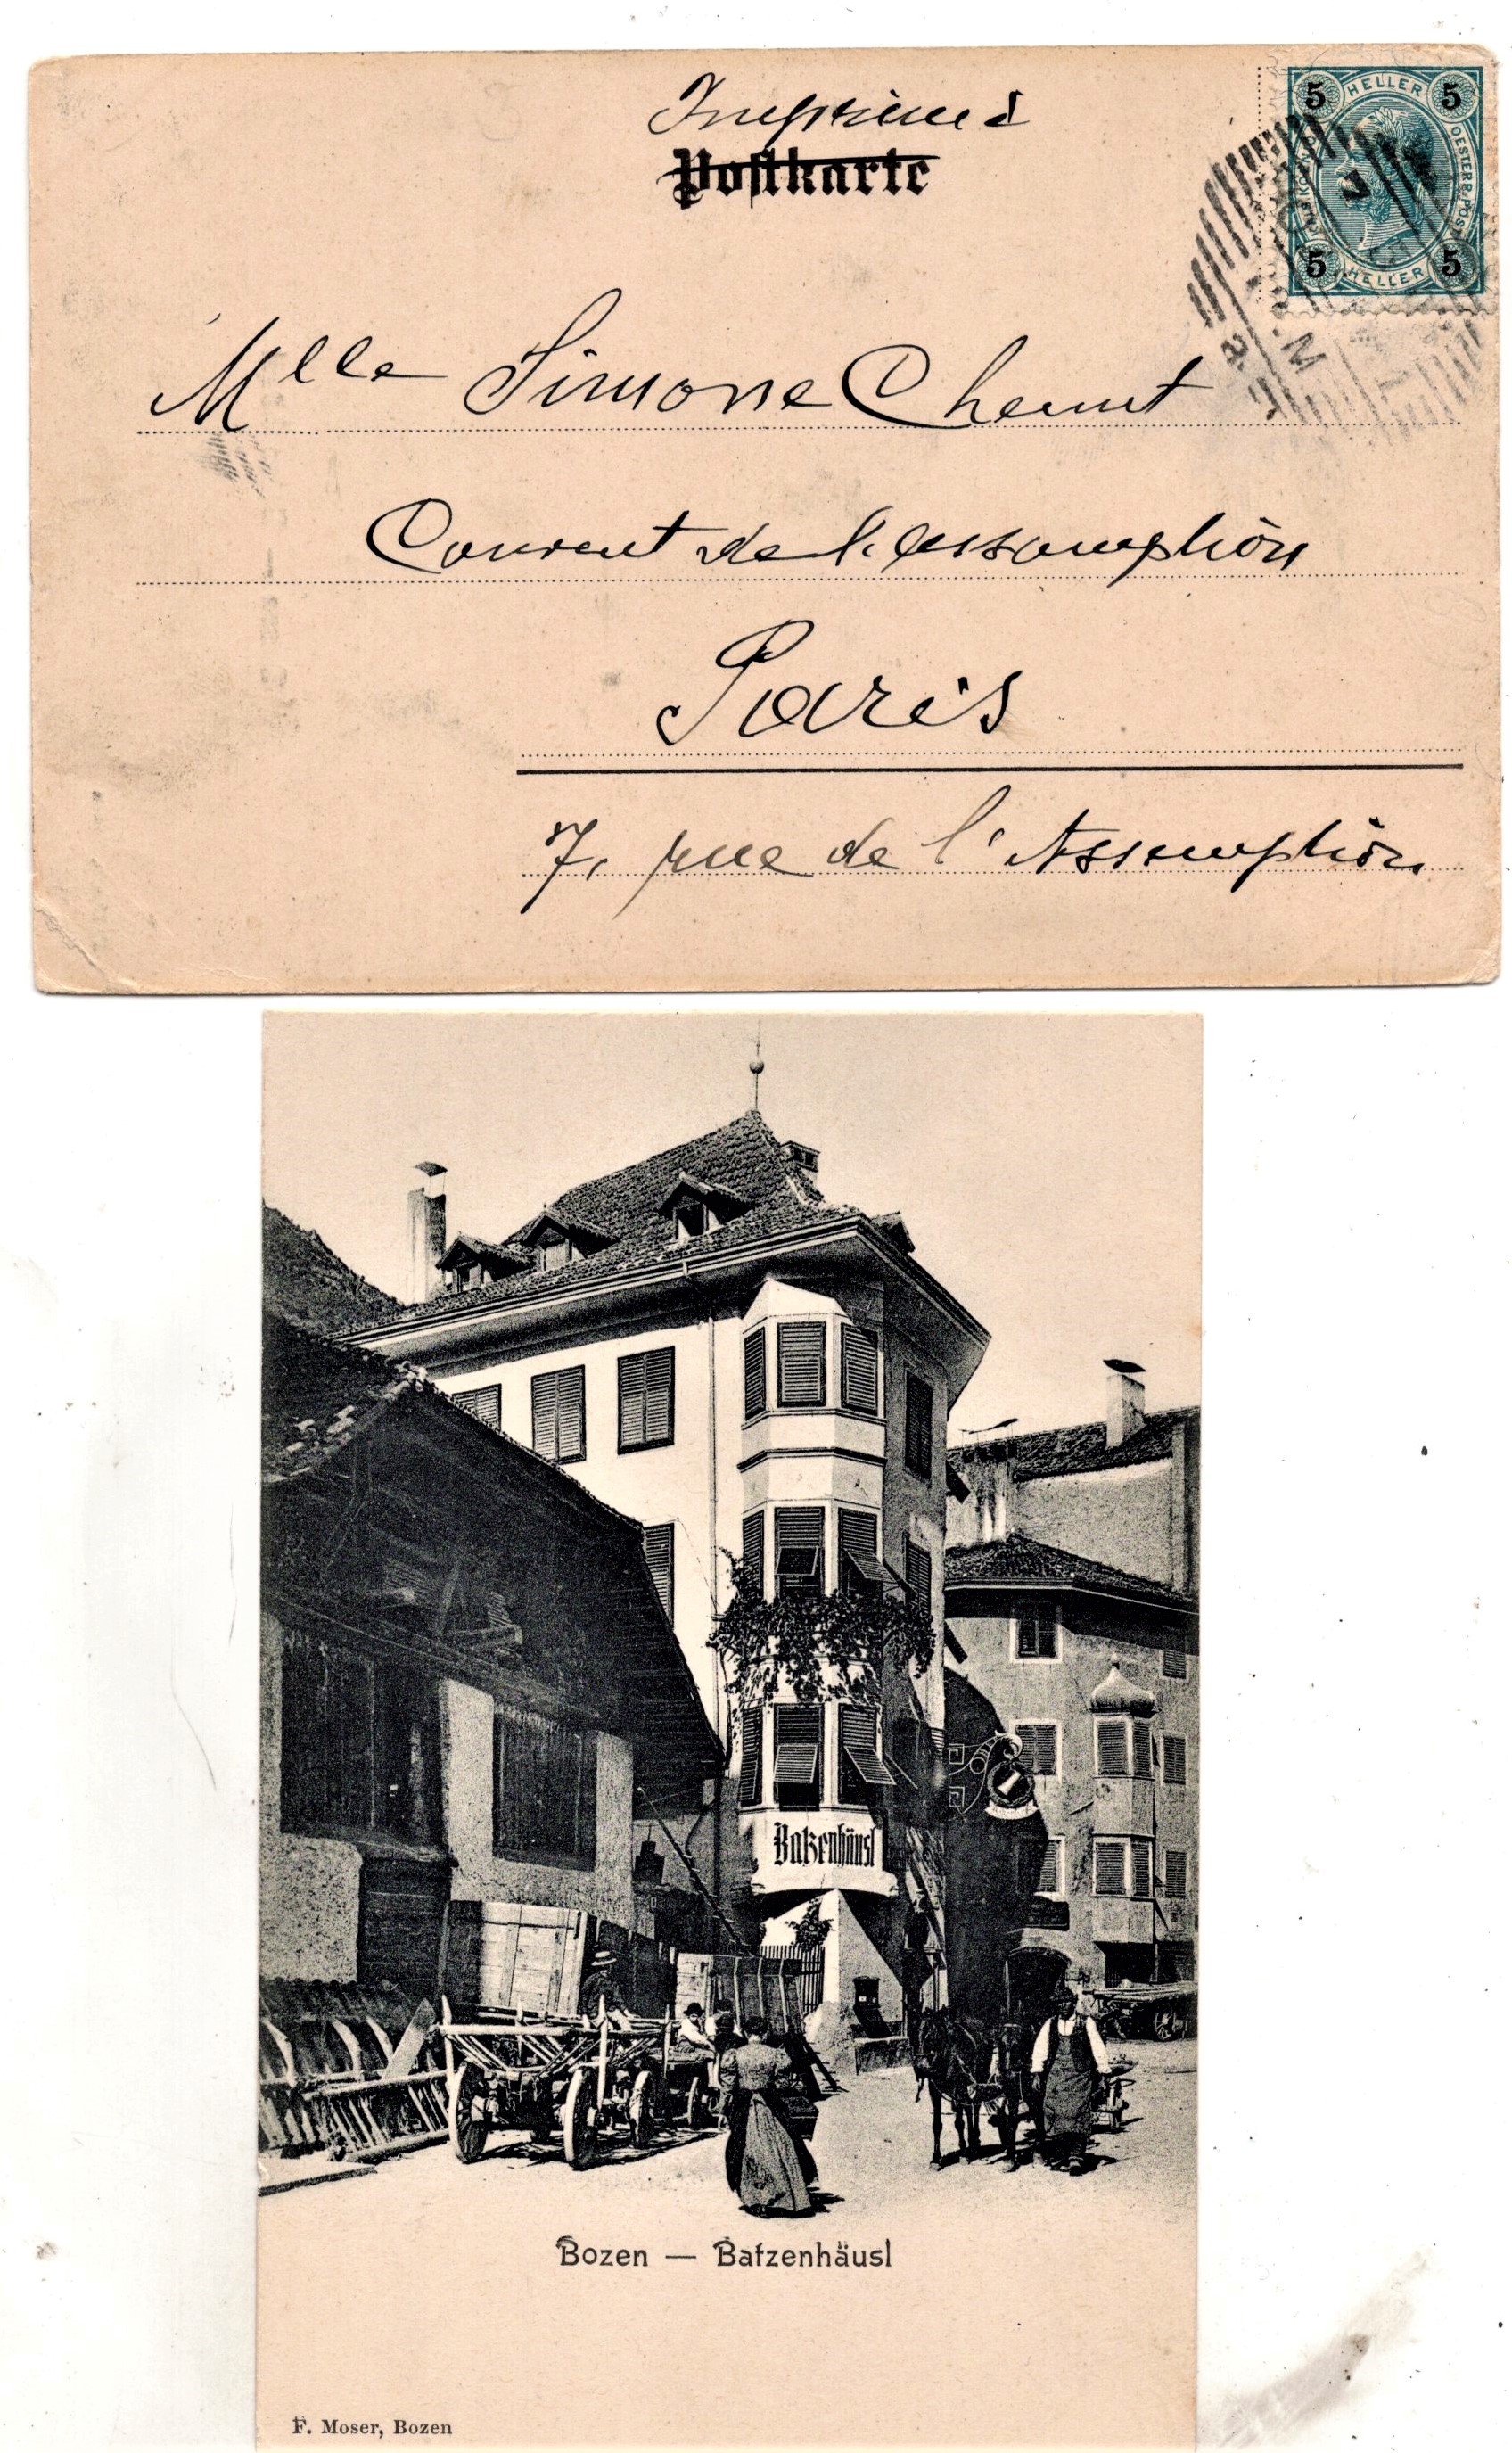 Imprimé
Postkarte
5 HELLER 5
OESTERR. POST
5 HELLER 5
Mlle Simone
Couvent de l'Assomption
Paris
7, rue de l'Assomption
Batzenhäusl
Bozen — Batzenhäusl
F. Moser, Bozen